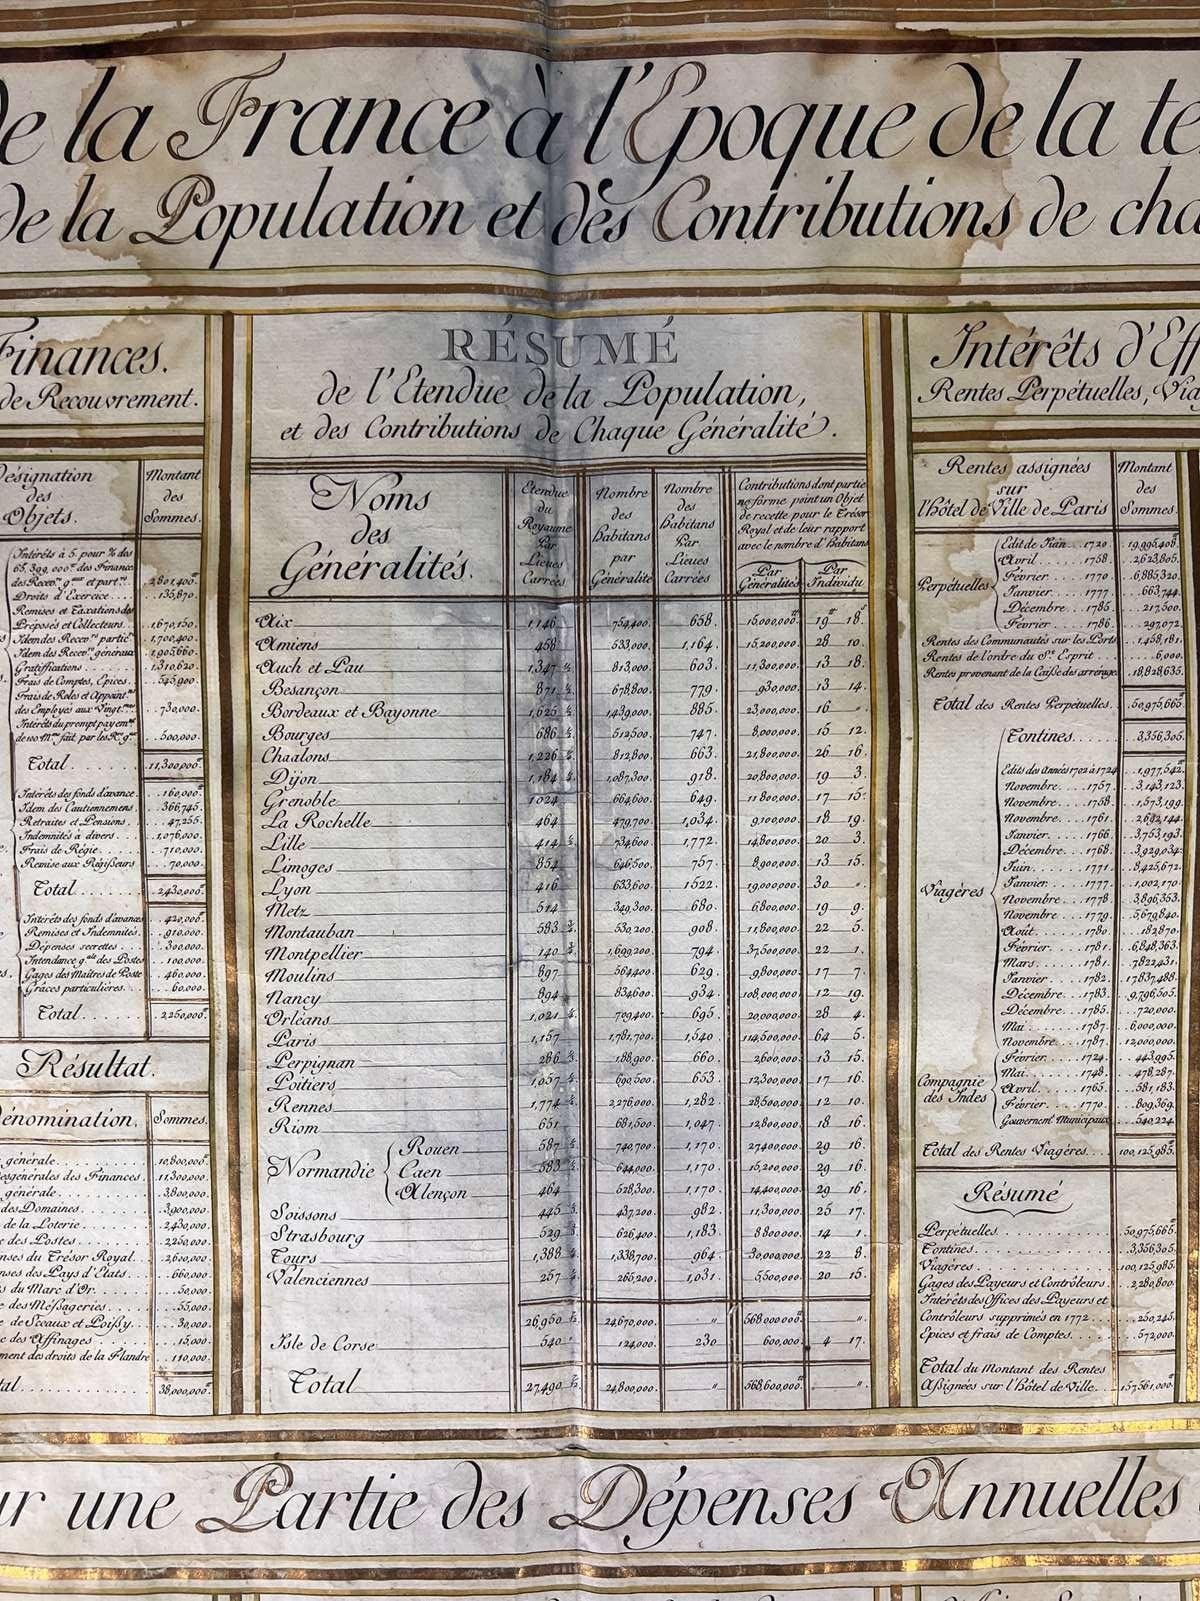 de la France à l'Epoque de la te
de la Population et des Contributions de cha
Finances.
de Recouvrement.
Désignation des Objets. Montant des Sommes.
Intérêts à 5. pour % des
65,399,000.# des Finances
des Recev.rs g.aux et part.rs 2,801,400.#
Droits d'Exercice 135,870.
Remises et Taxations des
Préposés et Collecteurs 1,670,150.
Idem des Recev.rs partic.rs 1,700,400.
Idem des Recev.rs généraux 1,905,660.
Gratifications 1,310,620.
Frais de Comptes, Epices 545,900.
Frais de Roles et Appoint.s
des Employés aux Vingt.mes 730,000.
Intérêts du prompt payem.t
500,000.
Total 11,300,000.#
Intérêts des fonds d'avance 160,000.#
Idem des Cautionnemens 366,745.
Retraites et Pensions 47,255.
Indemnités à divers 1,076,000.
Frais de Régie 710,000.
Remise aux Régisseurs 70,000.
Total 2,430,000.#
Intérêts des fonds d'avances 420,000.#
Remises et Indemnités 910,000.
Dépenses secrettes 300,000.
Intendance g.ale des Postes 100,000.
Gages des Maîtres de Poste 460,000.
Grâces particulières 60,000.
Total 2,250,000.#
Résultat.
Dénomination. Sommes.
générale 10,800,000.#
générales des Finances 11,300,000.
générale 3,800,000.
des Domaines 3,900,000.
de la Loterie 2,430,000.
des Postes 2,250,000.
du Trésor Royal 2,600,000.
des Pays d'Etats 660,000.
du Marc d'Or 50,000.
des Méssageries 55,000.
de Sceaux et Poissy 30,000.
des Affinages 15,000.
des droits de la Flandre 110,000.
38,000,000.#
RÉSUMÉ
de l'Etendue de la Population,
et des Contributions de Chaque Généralité.
Noms des Généralités.
Etendue du Royaume Par Lieues Carrées
Nombre des Habitans par Généralité
Nombre des Habitans Par Lieues Carrées
Contributions dont partie
ne forme point un Objet
de recette pour le Trésor
Royal et de leur rapport
avec le nombre d'Habitans
Par Généralités Par Individu
Aix 1,146 754,400. 658. 15,000,000.# 19.# 18.s
Amiens 458 533,000. 1,164. 15,200,000. 28 10.
Auch et Pau 1,347 813,000. 603. 11,300,000. 13 18.
Besançon 871 678,800. 779. 930,000. 13 14.
Bordeaux et Bayonne 1,625 1,439,000. 885. 23,000,000. 16 "
Bourges 686 512,500. 747. 8,000,000. 15 12.
Chaalons 1,226 812,800. 663. 21,800,000. 26 16.
Dijon 1,184 1,087,300. 918. 20,800,000. 19 3.
Grenoble 1024 664,600. 649. 11800,000. 17 15.
La Rochelle 464 479,700. 1,034. 9,100,000. 18 19.
Lille 414 734,600. 1,772. 14,800,000. 20 3.
Limoges 854 646,500. 757. 8,900,000. 13 15.
Lyon 416 633,600. 1522. 19,000,000. 30 "
Metz 514 349,300. 680. 6,800,000. 19 9.
Montauban 583 530,200. 908. 11,800,000. 22 5.
Montpellier 140 1,699,200. 794. 37,500,000. 22 1.
Moulins 897 564,400. 629. 9,800,000. 17 7.
Nancy 894 834,600. 934. 108,000,000. 12 19.
Orléans 1,021 709,400. 695. 20,000,000. 28 4.
Paris 1,157 1,781,700. 1,540. 114,500,000. 64 5.
Perpignan 286 188,900. 660. 2,600,000. 13 15.
Poitiers 1,057 690,500. 653. 12,300,000. 17 16.
Rennes 1,774 2,276,000. 1,282. 28,500,000. 12 10.
Riom 651 681,500. 1,047. 12,800,000. 18 16.
Normandie
Rouen 587 740,700. 1,170. 27,400,000. 29 16.
Caen 583 644,000. 1,170. 15,200,000. 29 16.
Alençon 464 528,300. 1,170. 14,400,000. 29 16.
Soissons 445 437,200. 982. 11,300,000. 25 17.
Strasbourg 529 626,400. 1,183. 8800,000. 14 1.
Tours 1,388 1,338,700. 964. 30,000,000. 22 8.
Valenciennes 257 265,200. 1,031. 5,500,000. 20 15.
26,950 24,670,000. " 568,000,000.# "
Isle de Corse 540 124,000. 230 600,000. 4 17.
Total 27,490 24,800,000. " 568,600,000.# "
Intérêts d'Eff
Rentes Perpétuelles, Via
Rentes assignées sur l'hôtel de Ville de Paris Montant des Sommes.
Perpétuelles
Edit de Juin 1720. 19,995,408.#
Avril 1758. 2,623,805.
Février 1770. 6,885,320.
Janvier 1777. 663,744.
Décembre 1785. 217,500.
Février 1786. 297,072.
Rentes des Communautés sur les Ports 1,458,181.
Rentes de l'ordre du S.t Esprit 6,000.
Rentes provenant de la Caisse des arrérages 18,828,635.
Total des Rentes Perpétuelles. 50,975,665.#
Tontines 3,356,305.
Viagères
Edits des Années 1702 à 1724 1,977,542.#
Novembre 1757. 3,143,123.
Novembre 1758. 1,573,199.
Novembre 1761. 2,692,144.
Janvier 1766. 3,753,193.
Décembre 1768. 3,929,034.
Juin 1771. 8,425,672.
Janvier 1777. 1,002,170.
Novembre 1778. 3,896,353.
Novembre 1779. 5,679,840.
Août 1780. 182,870.
Février 1781. 6,848,363.
Mars 1781. 7,822,431.
Janvier 1782. 17,837,488.
Décembre 1783. 9,796,505.
Décembre 1785. 720,000.
Mai 1787. 6,000,000.
Novembre 1787. 12,000,000.
Compagnie des Indes
Février 1724. 443,995.
Mai 1748. 478,287.
Avril 1765. 581,183.
Février 1770. 809,369.
Gouvernem.t Municipaux 540,224.
Total des Rentes Viagères 100,125,985.#
Résumé
Perpétuelles 50,975,665.#
Tontines 3,356,305.
Viagères 100,125,985.
Gages des Payeurs et Contrôleurs 2,280,800.
Intérêts des Offices des Payeurs et
Contrôleurs supprimés en 1772 250,245.
Epices et frais de Comptes 572,000.
Total du Montant des Rentes
Assignées sur l'hôtel de Ville 157,561,000.#
ur une Partie des Dépenses Annuelles